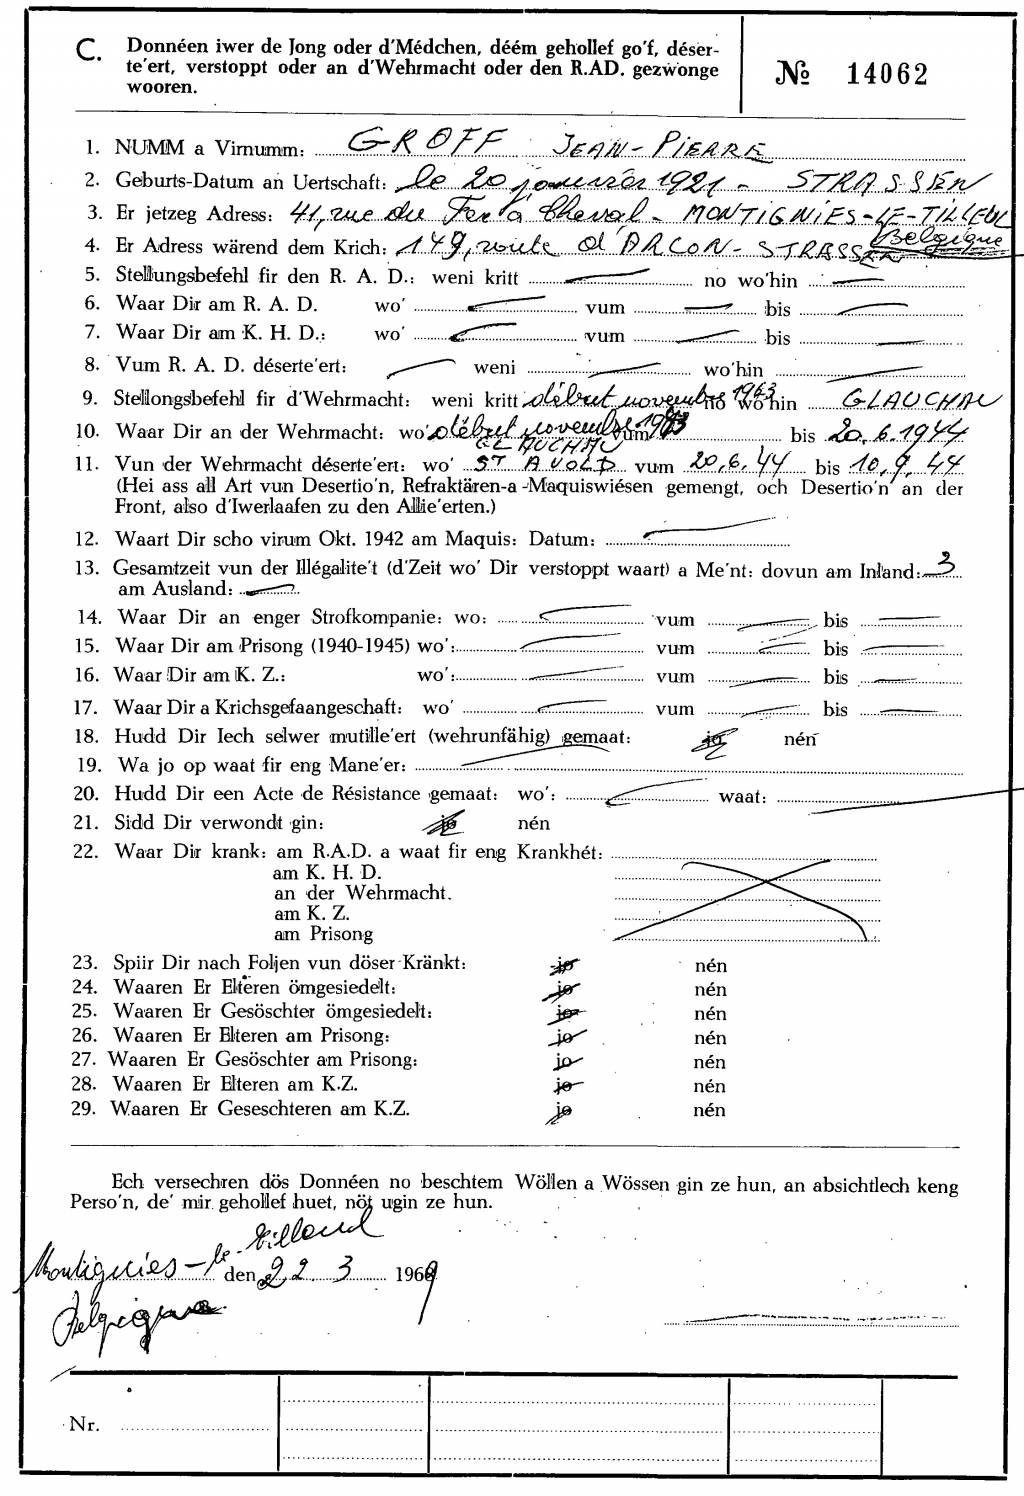 C. Donnéen iwer de Jong oder d'Médchen, déém gehollef go'f, déser-
te'ert, verstoppt oder an d'Wehrmacht oder den R.AD. gezwonge
wooren.
№ 14062
1. NUMM a Virnumm: GROFF JEAN-PIERRE
2. Geburts-Datum an Uertschaft: le 20 janvier 1921 - STRASSEN
3. Er jetzeg Adress: 41, rue du Fer à Cheval - MONTIGNIES-LE-TILLEUL
Belgique
4. Er Adress wärend dem Krich: 149, route d'ARLON - STRASSEN
5. Stellungsbefehl fir den R. A. D.: weni kritt no wo'hin
6. Waar Dir am R. A. D. wo' vum bis
7. Waar Dir am K. H. D.: wo' vum bis
8. Vum R. A. D. déserte'ert: weni wo'hin
9. Stellongsbefehl fir d'Wehrmacht: weni kritt début novembre 1963 no wo'hin GLAUCHAU
10. Waar Dir an der Wehrmacht: wo' début novembre vum 1943 bis 20.6.1944
GLAUCHAU
11. Vun der Wehrmacht déserte'ert: wo' ST AVOLD vum 20.6.44 bis 10.9.44
(Hei ass all Art vun Desertio'n, Refraktären-a-Maquiswiésen gemengt, och Desertio'n an der
Front, also d'Iwerlaafen zu den Allie'erten.)
12. Waart Dir scho virum Okt. 1942 am Maquis: Datum:
13. Gesamtzeit vun der Illégalite't (d'Zeit wo' Dir verstoppt waart) a Me'nt: dovun am Inland: 3
am Ausland:
14. Waar Dir an enger Strofkompanie: wo: vum bis
15. Waar Dir am Prisong (1940-1945) wo': vum bis
16. Waar Dir am K. Z.: wo': vum bis
17. Waar Dir a Krichsgefaangeschaft: wo' vum bis
18. Hudd Dir Iech selwer mutille'ert (wehrunfähig) gemaat: jo nén
19. Wa jo op waat fir eng Mane'er:
20. Hudd Dir een Acte de Résistance gemaat: wo': waat:
21. Sidd Dir verwondt gin: jo nén
22. Waar Dir krank: am R.A.D. a waat fir eng Krankhét:
am K. H. D.
an der Wehrmacht.
am K. Z.
am Prisong
23. Spiir Dir nach Foljen vun döser Kränkt: jo nén
24. Waaren Er Elteren ömgesiedelt: jo nén
25. Waaren Er Gesöschter ömgesiedelt: jo nén
26. Waaren Er Elteren am Prisong: jo nén
27. Waaren Er Gesöschter am Prisong: jo nén
28. Waaren Er Elteren am K.Z. jo nén
29. Waaren Er Geseschteren am K.Z. jo nén
Ech versechren dös Donnéen no beschtem Wöllen a Wössen gin ze hun, an absichtlech keng
Perso'n, de' mir gehollef huet, nöt ugin ze hun.
Montignies-le-Tilleul den 22.3 1969
Belgique
Nr.